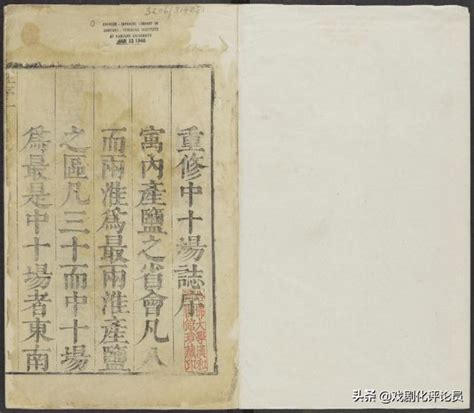 CHINESE-JAPANESE LIBRARY OF
HARVARD-YENCHING INSTITUTE
AT HARVARD UNIVERSITY
JAN 13 1948
重修中十場誌序
寓內產鹽之省會凡八
而兩淮爲最兩淮產鹽
之區凡三十而中十場
爲最是中十場者東南
头条 @戏剧化评论员